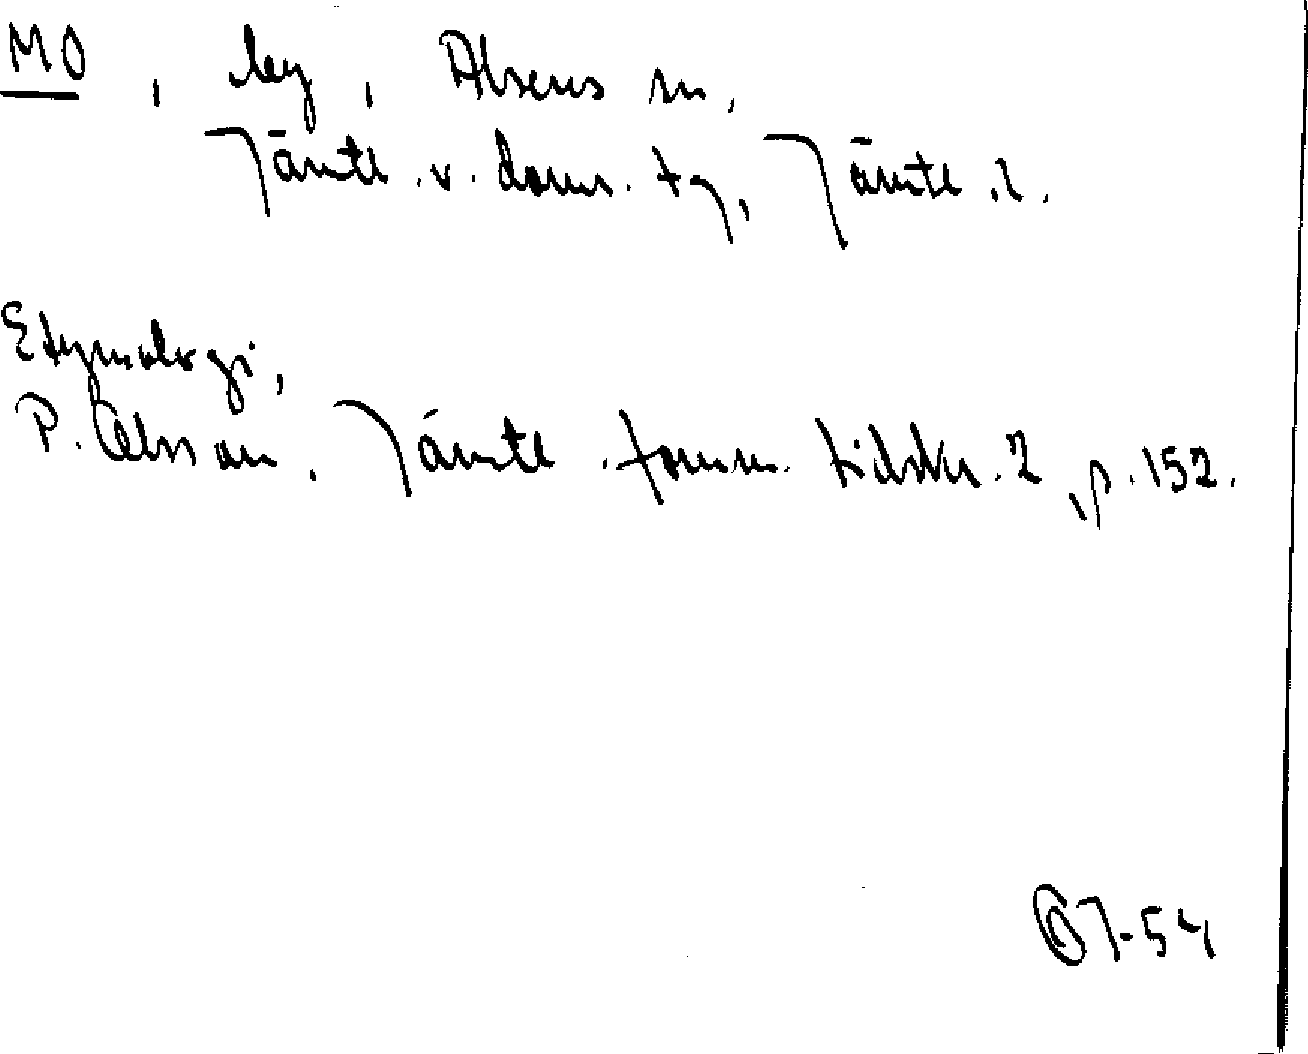 MO, by, Alsens sn,
Jämtl. v. doms. tg, Jämtl. l.
Etymologi,
P. Olsson. Jämtl. fornm. tidskr. 2, p. 152.